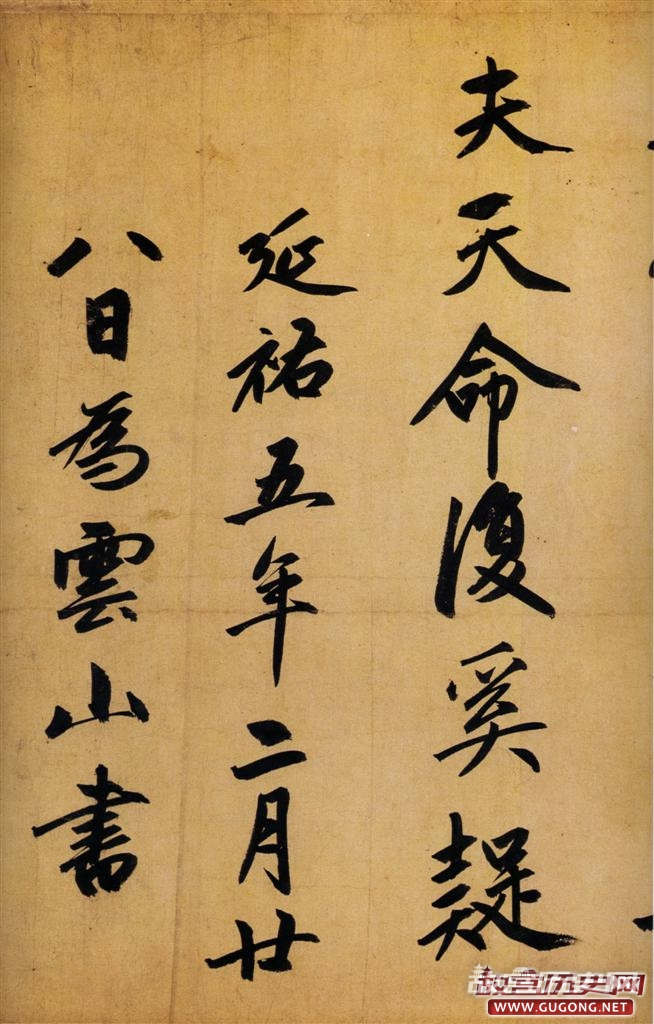 夫天命復奚疑
延祐五年二月廿
八日為雲山書
故宫历史网
www.GUGONG.net